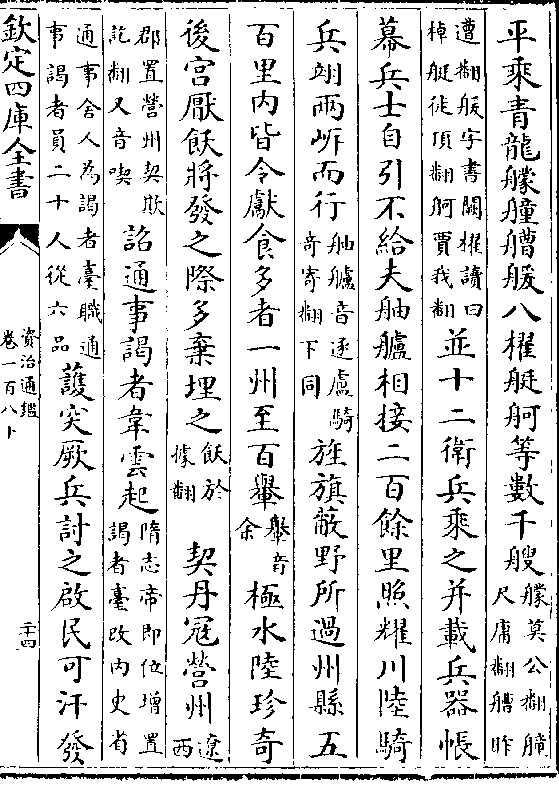 平乘青龍艨艟艚䑰八櫂艇舸等數千艘艨莫公翻艟尺庸翻艚昨
遭翻䑰字書闕櫂讀曰棹艇徒頂翻舸賈我翻並十二衛兵乘之并載兵器帳
幕兵士自引不給夫舳艫相接二百餘里照耀川陸騎
兵翊兩岸而行舳艫音逐盧騎奇寄翻下同旌旗蔽野所過州縣五
百里内皆令獻食多者一州至百轝轝音余極水陸珍奇
後宫厭飫將發之際多棄埋之飫於據翻 契丹冦營州遼西
郡置營州契欺訖翻又音喫詔通事謁者韋雲起隋志帝即位增置謁者臺改内史省
通事舍人為謁者臺職通事謁者員二十人從六品護突厥兵討之啟民可汗發
欽定四庫全書
資治通鑑
卷一百八十
二十四